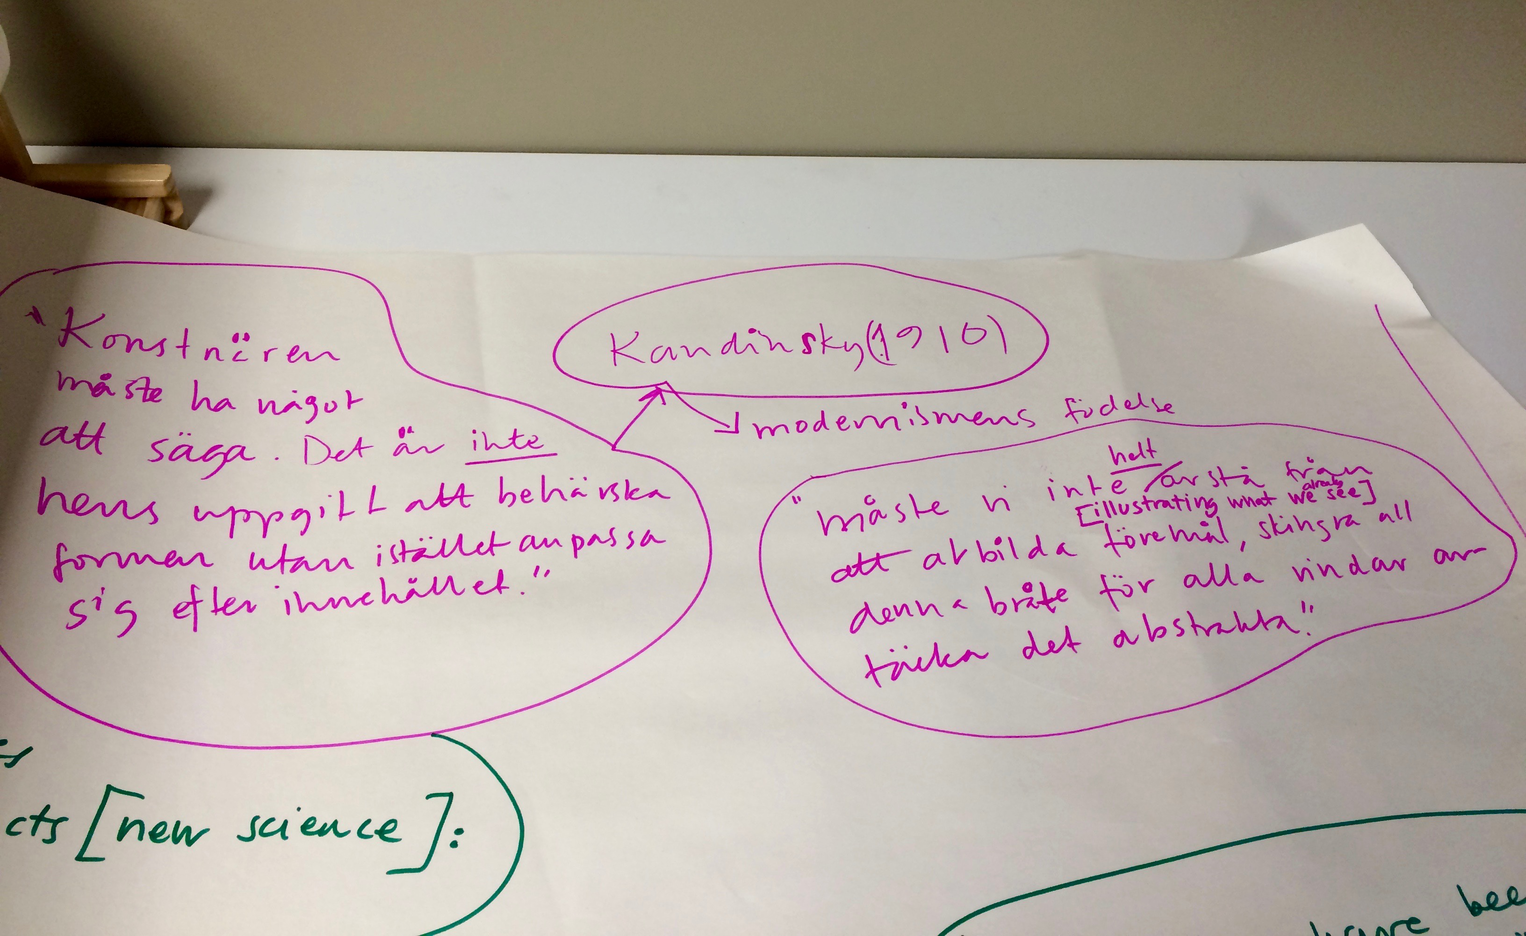 Kandinsky (1910)
modernismens födelse
"Konstnären
måste ha något
att säga. Det är inte
hens uppgift att behärska
formen utan istället anpassa
sig efter innehållet."
helt
"måste vi inte avstå från
[illustrating what we see]
att avbilda föremål, skingra all
denna bråte för alla vindar av-
täcka det abstrakta."
cts [new science]:
have bee